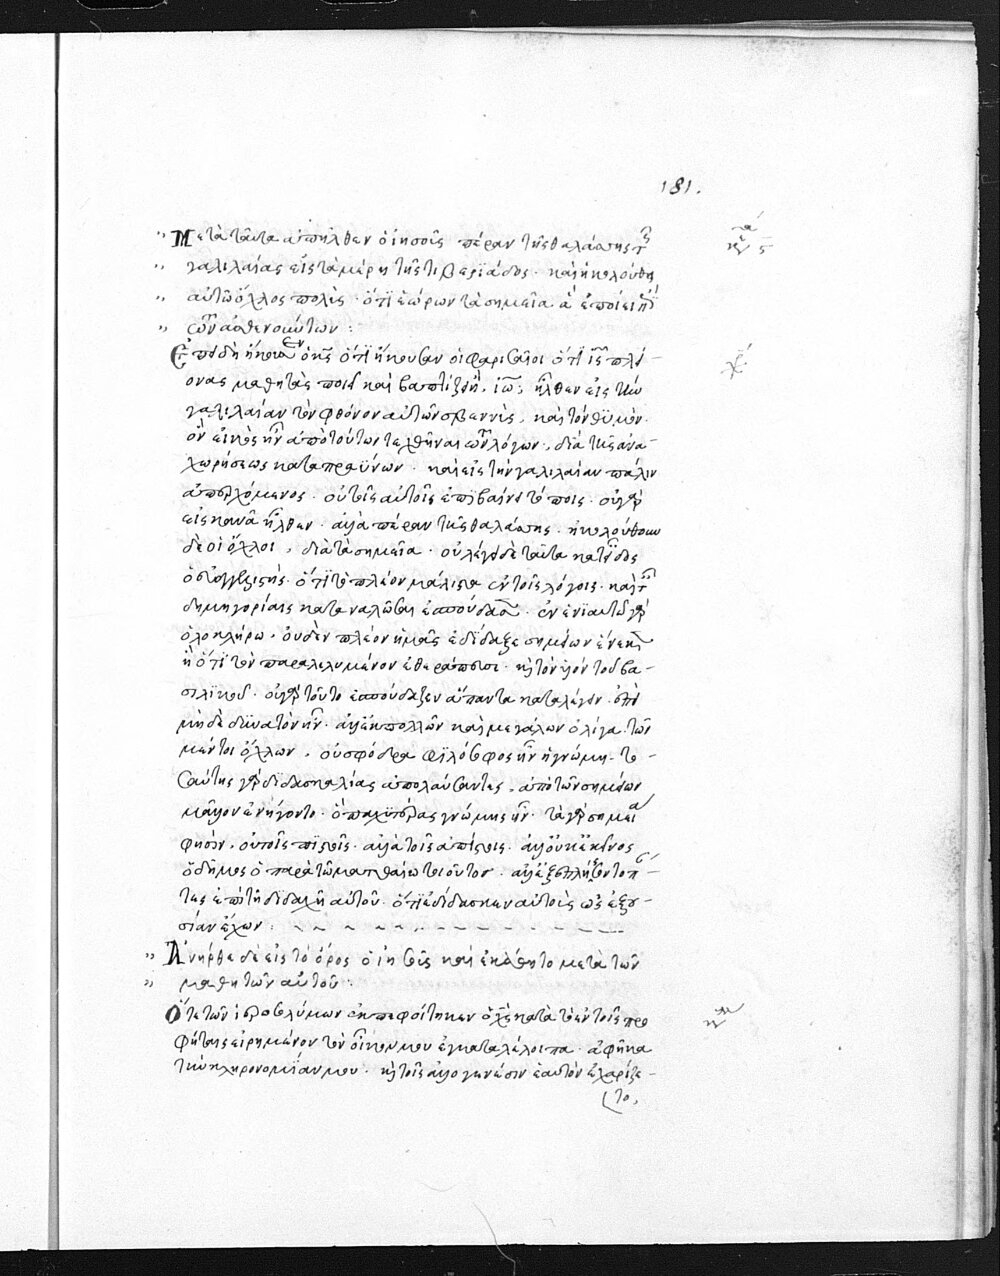 181.
Μετὰ ταῦτα ἀπῆλθεν ὁ ἰησοῦς πέραν τῆς θαλάσσης τ
γαλιλαίας εἰς τὰ μέρη τῆς τιβεριάδος· καὶ ἠκολούθη
αὐτῶ ὄχλος πολὺς· ὅτι ἑώρων τὰ σημεῖα ἃ ἐποίει ἐπὶ
τῶν ἀσθενούντων:
Ἐπειδὴ ὁ κς ὅτι ἤκουσαν οἱ φαρισαῖοι ὅτι ις πλεί-
ονας μαθητὰς ποιεῖ καὶ βαπτίζει, ἢ ἰω, ἦλθεν εἰς τὴν
γαλιλαίαν τὸν φθόνον αὐτῶν σβεννὺς, καὶ τὸν θυμὸν.
ὃν εἰκὸς ἦν ἀπὸ τούτων τεχθῆναι τῶν λόγων, διὰ τῆς ἀνα-
χωρήσεως καταπραΰνων· καὶ εἰς τὴν γαλιλαίαν πάλιν
ἀπερχόμενος· οὐ τοῖς αὐτοῖς ἐπιβαίνει τόποις· οὐ γὰρ
εἰς κανᾶ ἦλθεν· ἀλλὰ πέραν τῆς θαλάσσης· ἠκολούθουν
δὲ οἱ ὄχλοι, διὰ τὰ σημεῖα· οὐ λέγει δὲ ταῦτα κατ' εἶδος
ὁ εὐαγγελιστής· ὅτι τὸ πλέον μάλιστα ἐν τοῖς λόγοις· καὶ τ
δημηγορίαις καταναλῶσαι ἐσπούδασεν· ἐν ἐνιαυτῶ γὰρ
ὁλοκλήρω, οὐδὲν πλέον ἡμᾶς ἐδίδαξε σημείων ἕνεκεν
ἢ ὅτι τὸν παραλελυμένον ἐθεράπευσε· κ τὸν υἱὸν τοῦ βα-
σιλικοῦ· οὐ γὰρ τοῦτο ἐσπούδαζεν ἅπαντα καταλέγειν·
μὴ δὲ δυνατὸν ἦν· ἀλλ' ἐκ πολλῶν καὶ μεγάλων ὀλίγα· τῶν
μέντοι ὄχλων, οὐ σφόδρα φιλόσοφος ἦν ἡ γνώμη· το-
σαύτης γὰρ διδασκαλίας ἀπολαύσαντες, ἀπὸ τῶν σημείων
μᾶλλον ἐνήγοντο· ὃ παχυτέρας γνώμης ἦν· τὰ γὰρ σημεῖα
φησὶν, οὐ τοῖς πιστοῖς· ἀλλὰ τοῖς ἀπίστοις· ἀλλ' οὐκ ἐκεῖνος
ὁ δῆμος ὁ παρὰ τῶ ματθαίω τοιοῦτος· ἀλλ' ἐξεπλήσσοντο πάν-
τες ἐπὶ τῇ διδαχῆ αὐτοῦ· ὅτι ἐδίδασκεν αὐτοὺς ὡς ἐξου-
σίαν ἔχων·
Ἀνῆλθε δὲ εἰς τὸ ὄρος ὁ ἰησοῦς καὶ ἐκάθητο μετὰ τῶν
μαθητῶν αὐτοῦ·
Ὅτε τῶν ἱεροσολύμων ἐκπεφοίτηκεν ὁ χς κατὰ τὸ ἐν τοῖς προ
φήταις εἰρημένον τὸν οἶκόν μου ἐγκαταλέλοιπα· ἀφῆκα
τὴν κληρονομίαν μου· κ τοῖς ἀλλογενέσιν ἑαυτὸν ἐχαρίζε-
το,